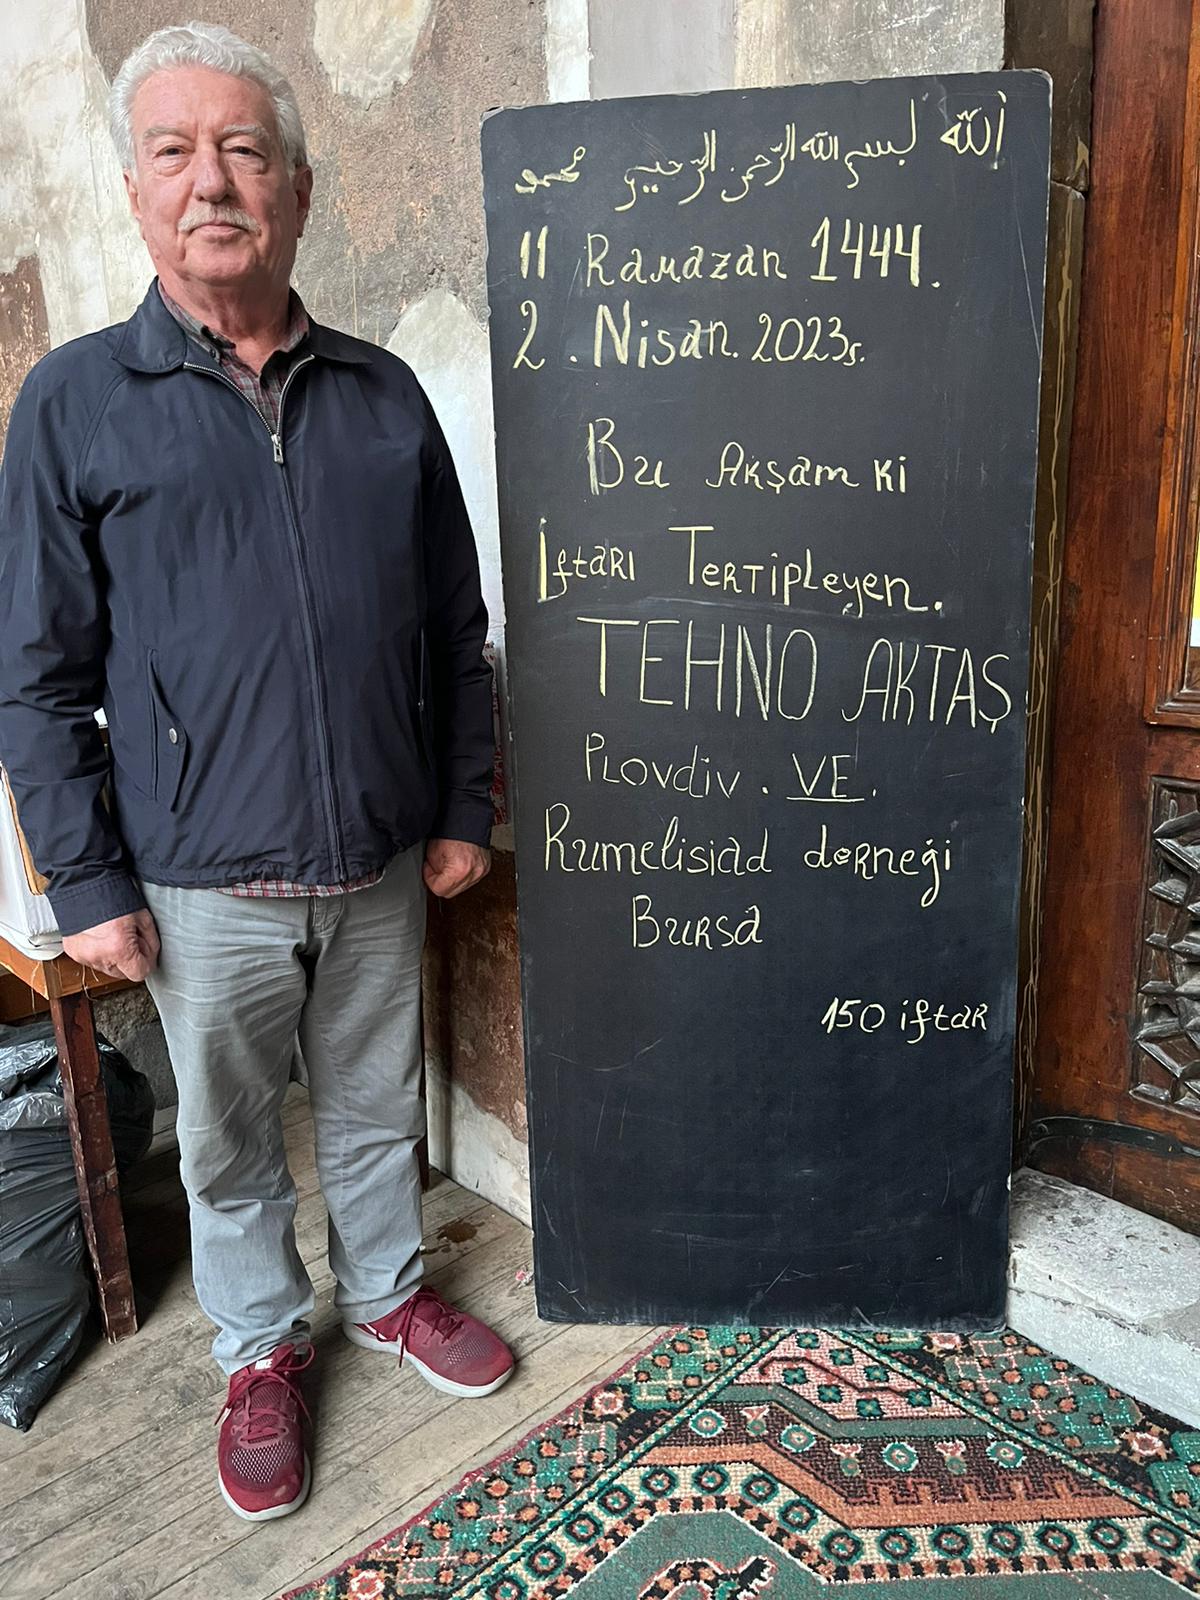 الله بسم الله الرّحمن الرّحيم محمد
11 Ramazan 1444.
2. Nisan. 2023s.
Bu Akşam ki
İftarı Tertipleyen.
TEHNO AKTAŞ
Plovdiv. VE.
Rumelisiad derneği
Bursa
150 iftar
NIKE